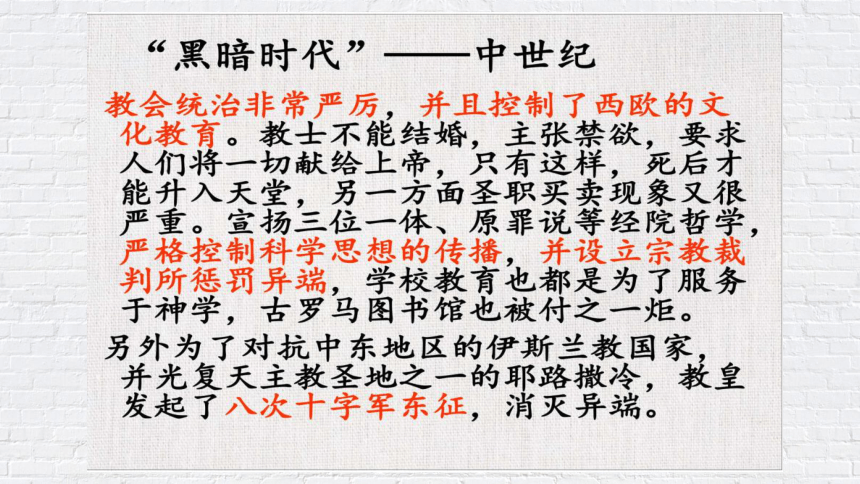 “黑暗时代”——中世纪
教会统治非常严厉，并且控制了西欧的文
化教育。教士不能结婚，主张禁欲，要求
人们将一切献给上帝，只有这样，死后才
能升入天堂，另一方面圣职买卖现象又很
严重。宣扬三位一体、原罪说等经院哲学，
严格控制科学思想的传播，并设立宗教裁
判所惩罚异端，学校教育也都是为了服务
于神学，古罗马图书馆也被付之一炬。
另外为了对抗中东地区的伊斯兰教国家，
并光复天主教圣地之一的耶路撒冷，教皇
发起了八次十字军东征，消灭异端。